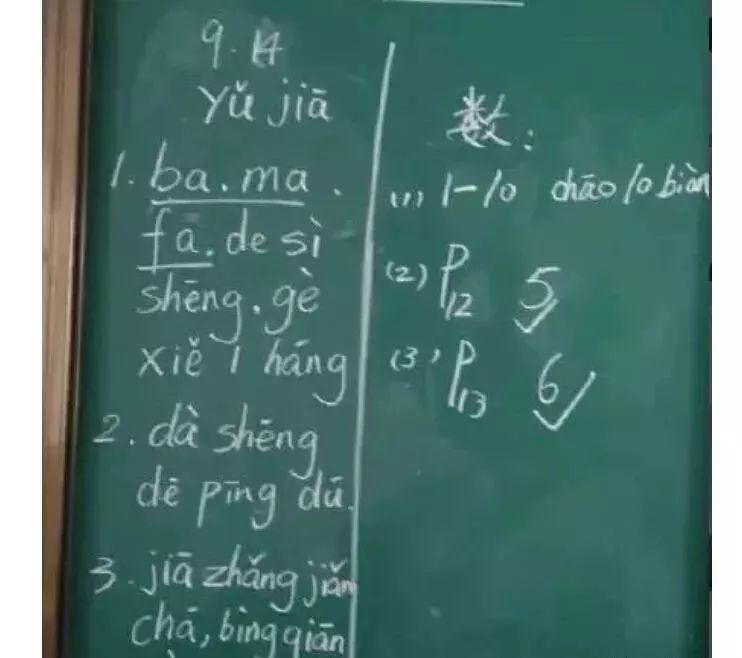 9.14
Yǔ jiā
1. ba. ma.
fā. de sì
shēng. gè
xiě 1 háng
2. dà shēng
dē pīng dū.
3. jiā zhǎng jiǎn
chá, bìng qiān
数:
(1) 1-10 chāo 10 biàn
(2) P12 5
(3) P13 6